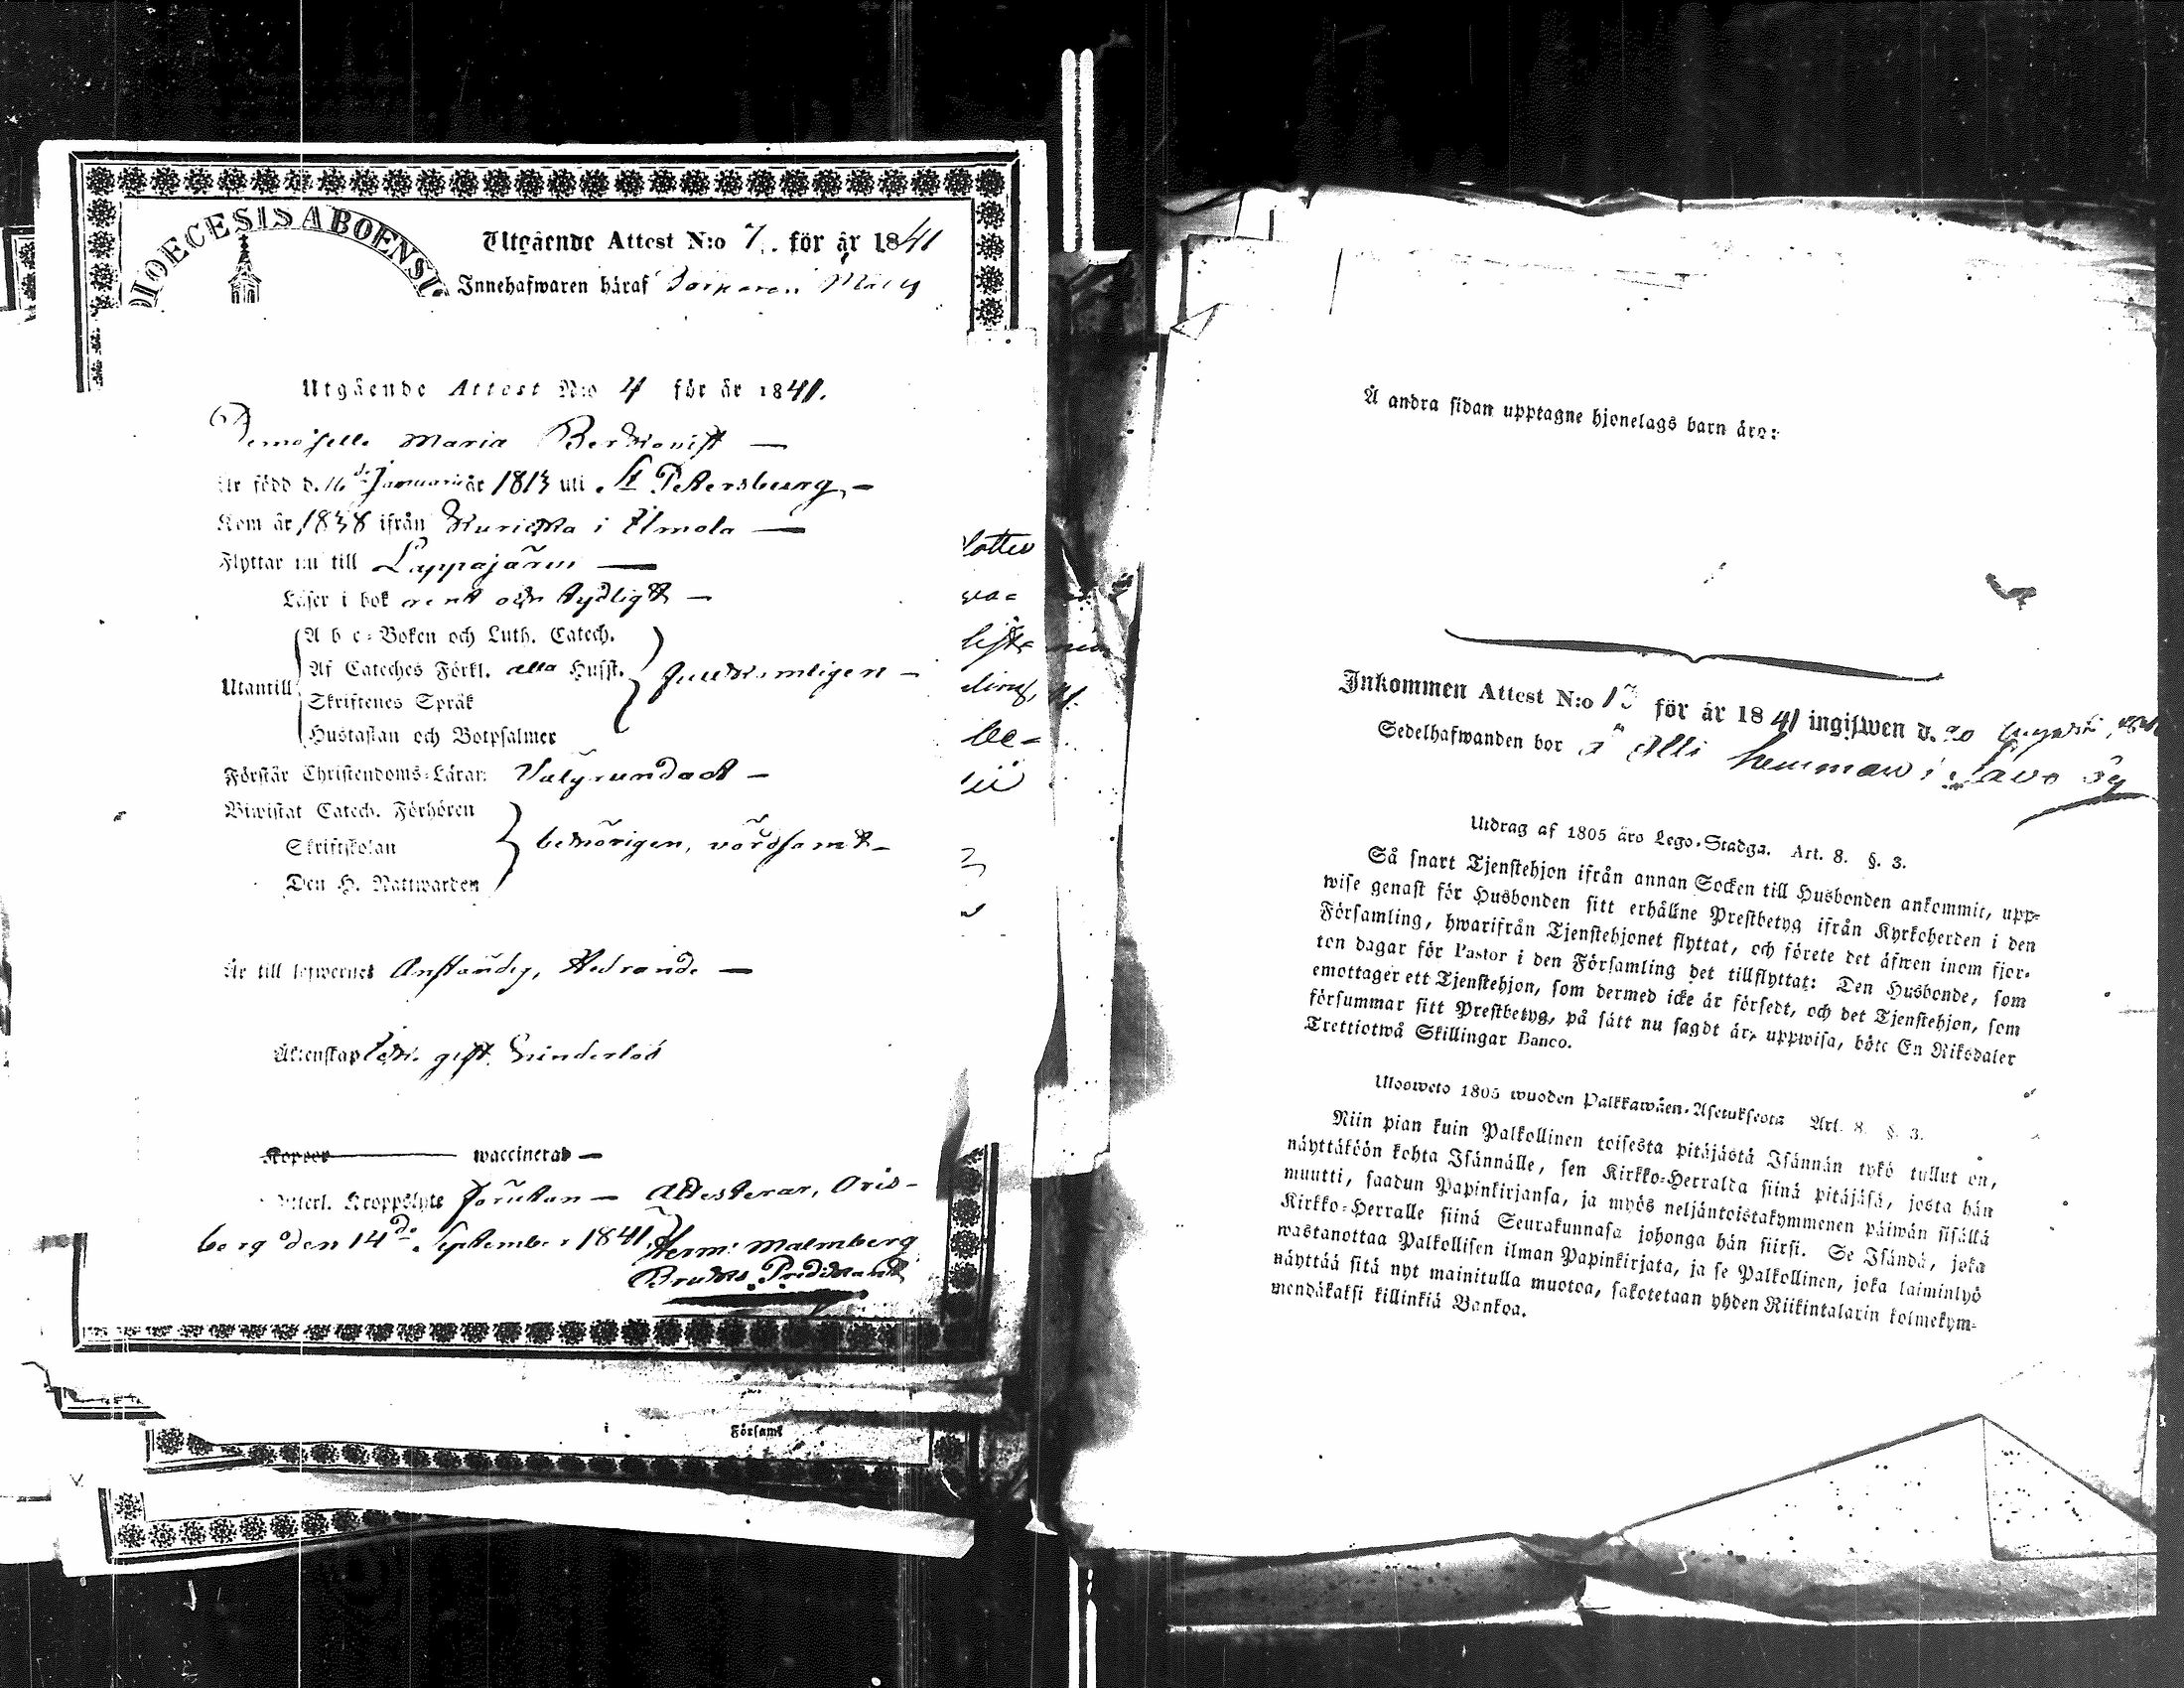 DIOECESIS ABOENSIS
Utgående Attest N:o 7. för år 1841
Innehafwaren häraf
Utgående Attest N:o 4 för år 1841.
Demoiselle Maria
Är född d. 16de Januarii år 1813 uti St Petersburg,
Kom år 1838 ifrån Kurikka i Ilmola
Flyttar nu till Lappajärvi
Läser i bok rent och tydligt
Utantill
A b c-Boken och Luth. Catech.
Af Cateches Förkl. alla Husst.
Skriftenes Språk
Hustaflan och Botpsalmer
Förstår Christendoms-Läran
Biwistat Catech. Förhören
Skriftskolan
Den H. Nattwarden
behörigen, vördsamt
Är till lefwernet Anständig, Hedrande
Äktenskap icke gift. hinderlös
Kopper waccinerad
Ytterl. Kroppslyte förutan — Attesterar, Oris-
berg den 14de September 1841. Herm: Malmberg
Bruks Predikant
i Församl
Å andra sidan upptagne hjonelags barn äro:
Inkommen Attest N:o 13 för år 1841 ingifwen d. 20 Augusti, 1841
Sedelhafwanden bor å Alli hemman i Savo by
Utdrag af 1805 års Lego-Stadga. Art. 8. §. 3.
Så snart Tjenstehjon ifrån annan Socken till Husbonden ankommit, upp-
wise genast för Husbonden sitt erhållne Prestbetyg ifrån Kyrkoherden i den
Församling, hwarifrån Tjenstehjonet flyttat, och förete det äfwen inom fjor-
ton dagar för Pastor i den Församling det tillflyttat: Den Husbonde, som
emottager ett Tjenstehjon, som dermed icke är försedt, och det Tjenstehjon, som
försummar sitt Prestbetyg, på sätt nu sagdt är, uppwisa, böte En Riksdaler
Trettiotwå Skillingar Banco.
Ulosweto 1805 wuoden Palkkawäen-Asetuksesta Art. 8. §. 3.
Niin pian kuin Palkollinen toisesta pitäjästä Isännän tykö tullut on,
näyttäköön kohta Isännälle, sen Kirkko-Herralta siinä pitäjäsä, josta hän
muutti, saadun Papinkirjansa, ja myös neljäntoistakymmenen päiwän sisällä
Kirkko-Herralle siinä Seurakunnasa johonga hän siirsi. Se Isändä, joka
wastanottaa Palkollisen ilman Papinkirjata, ja se Palkollinen, joka laiminlyö
näyttää sitä nyt mainitulla muotoa, sakotetaan yhden Riikintalarin kolmekym-
mendäkaksi killinkiä Bankoa.